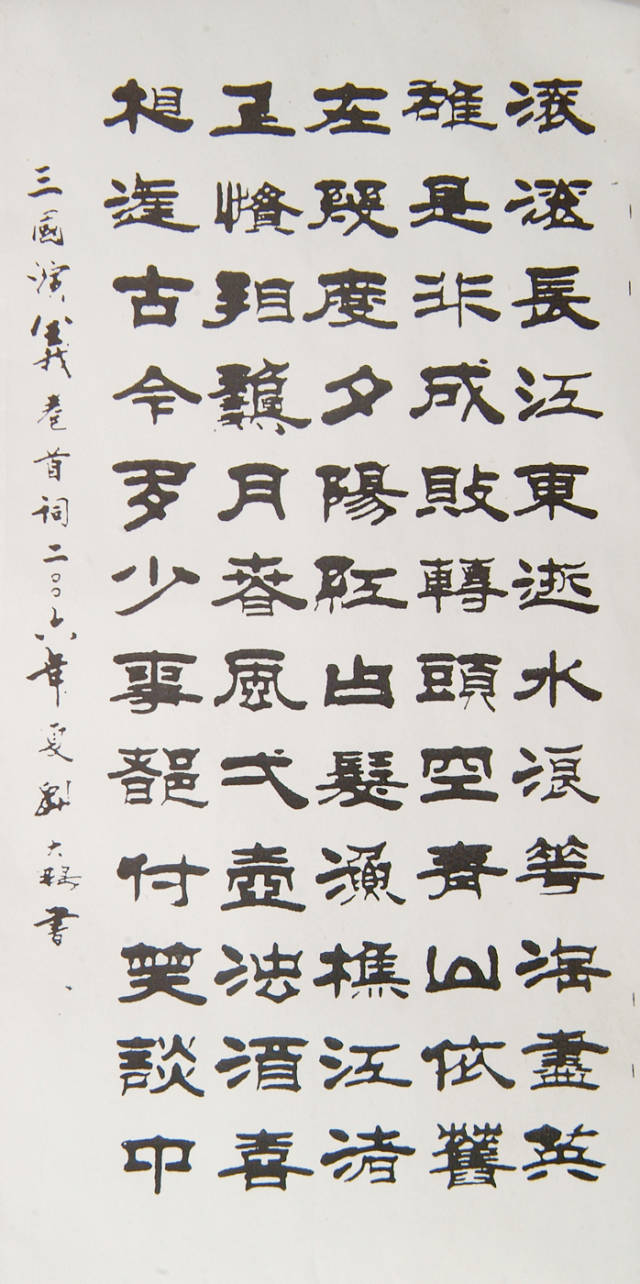 滚滚長江東逝水浪花淘盡英
雄是非成敗轉頭空青山依舊
在幾度夕陽紅白髮漁樵江渚
上慣看龝月春風弌壺浊酒喜
相逢古今多少事都付笑談中
三國演義卷首詞二〇〇六年夏劉大書